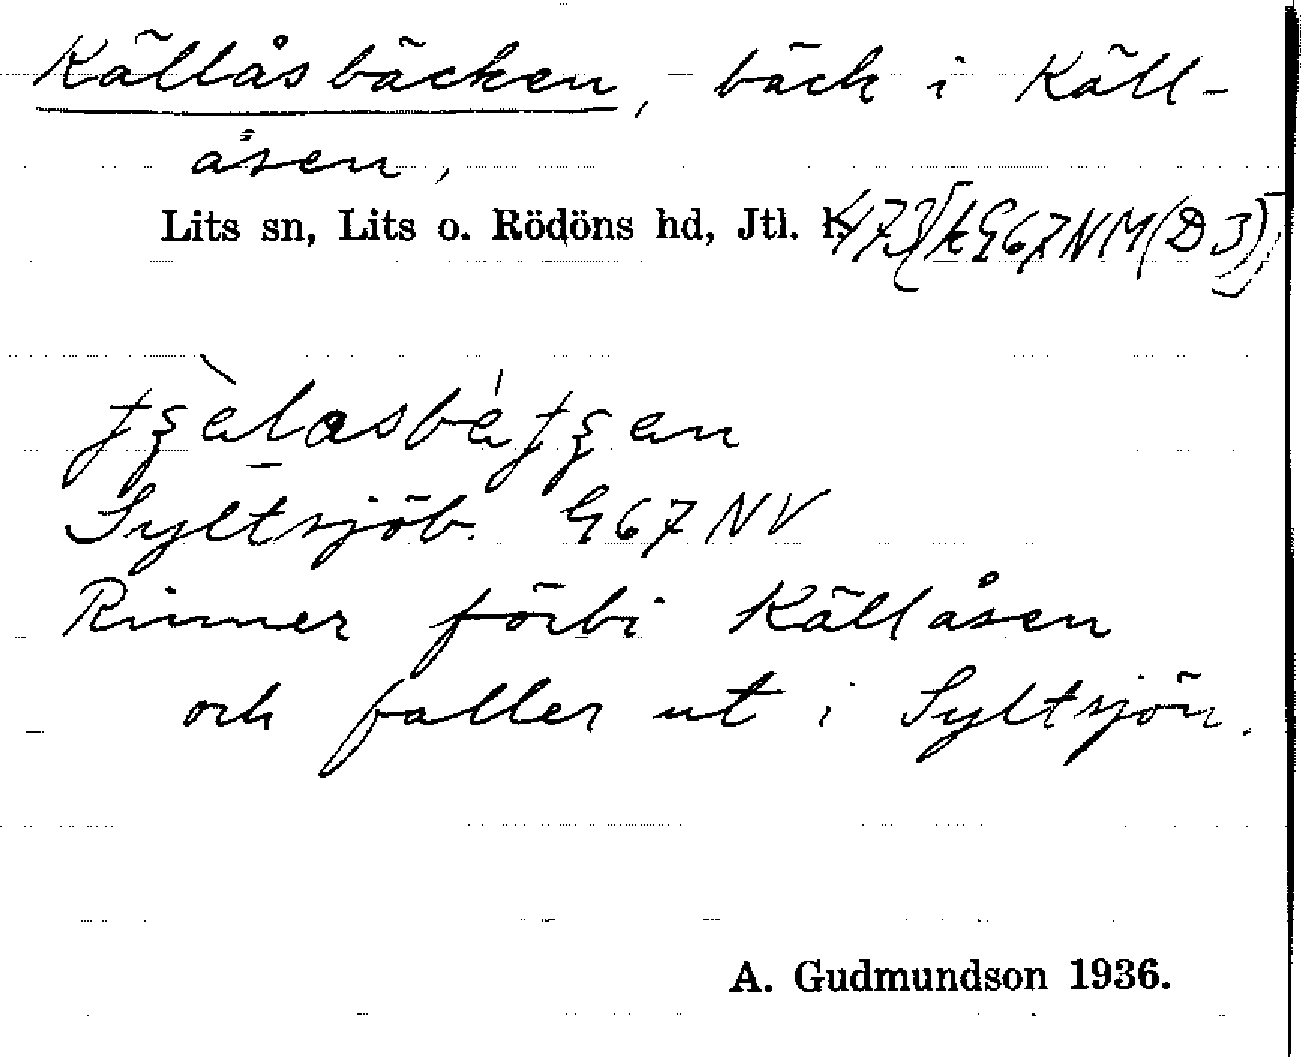 Källåsbäcken, bäck i Käll-
åsen,
Lits sn, Lits o. Rödöns hd, Jtl.
Syltsjöb. G67NV
Rinner förbi Källåsen
och faller ut i Syltsjön.
A. Gudmundson 1936.